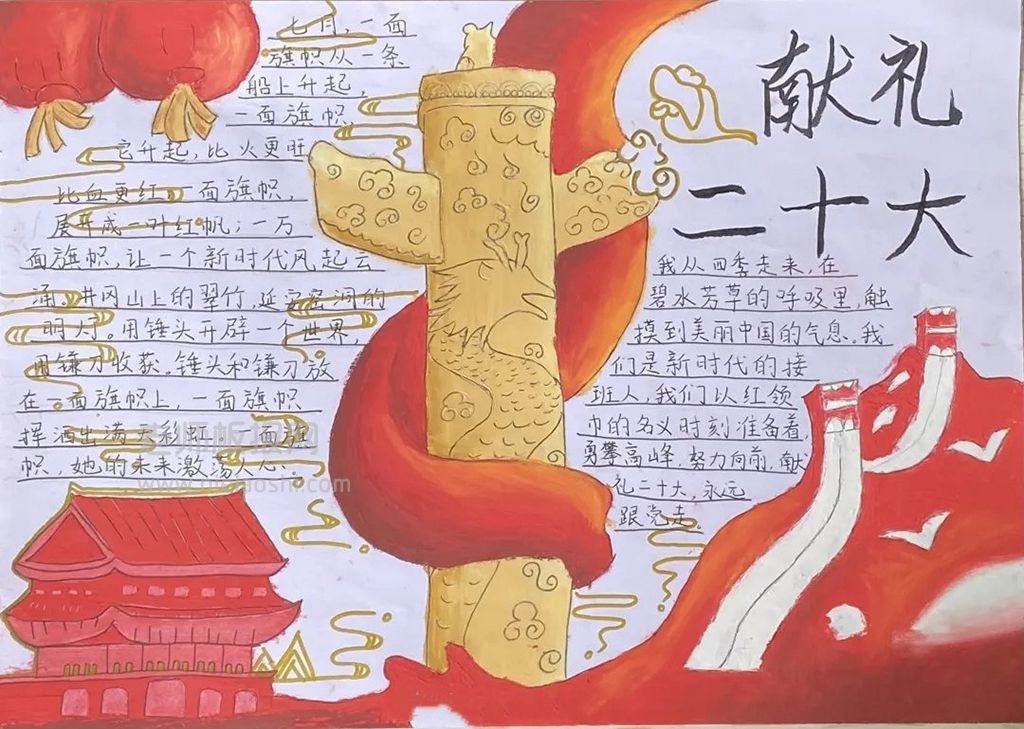 献礼
二十大
七月,一面
旗帜从一条
船上升起,
一面旗帜,
它升起,比火更旺
比血更红,一面旗帜,
展开成一叶红帆;一万
面旗帜,让一个新时代风起云
涌。井冈山上的翠竹,延安窑洞的
明灯。用锤头开辟一个世界,
用镰刀收获。锤头和镰刀放
在一面旗帜上,一面旗帜
挥洒出满天彩虹,一面旗
帜,她的未来激荡人心。
我从四季走来,在
碧水芳草的呼吸里,触
摸到美丽中国的气息。我
们是新时代的接
班人,我们以红领
巾的名义时刻准备着,
勇攀高峰,努力向前,献
礼二十大,永远
跟党走。